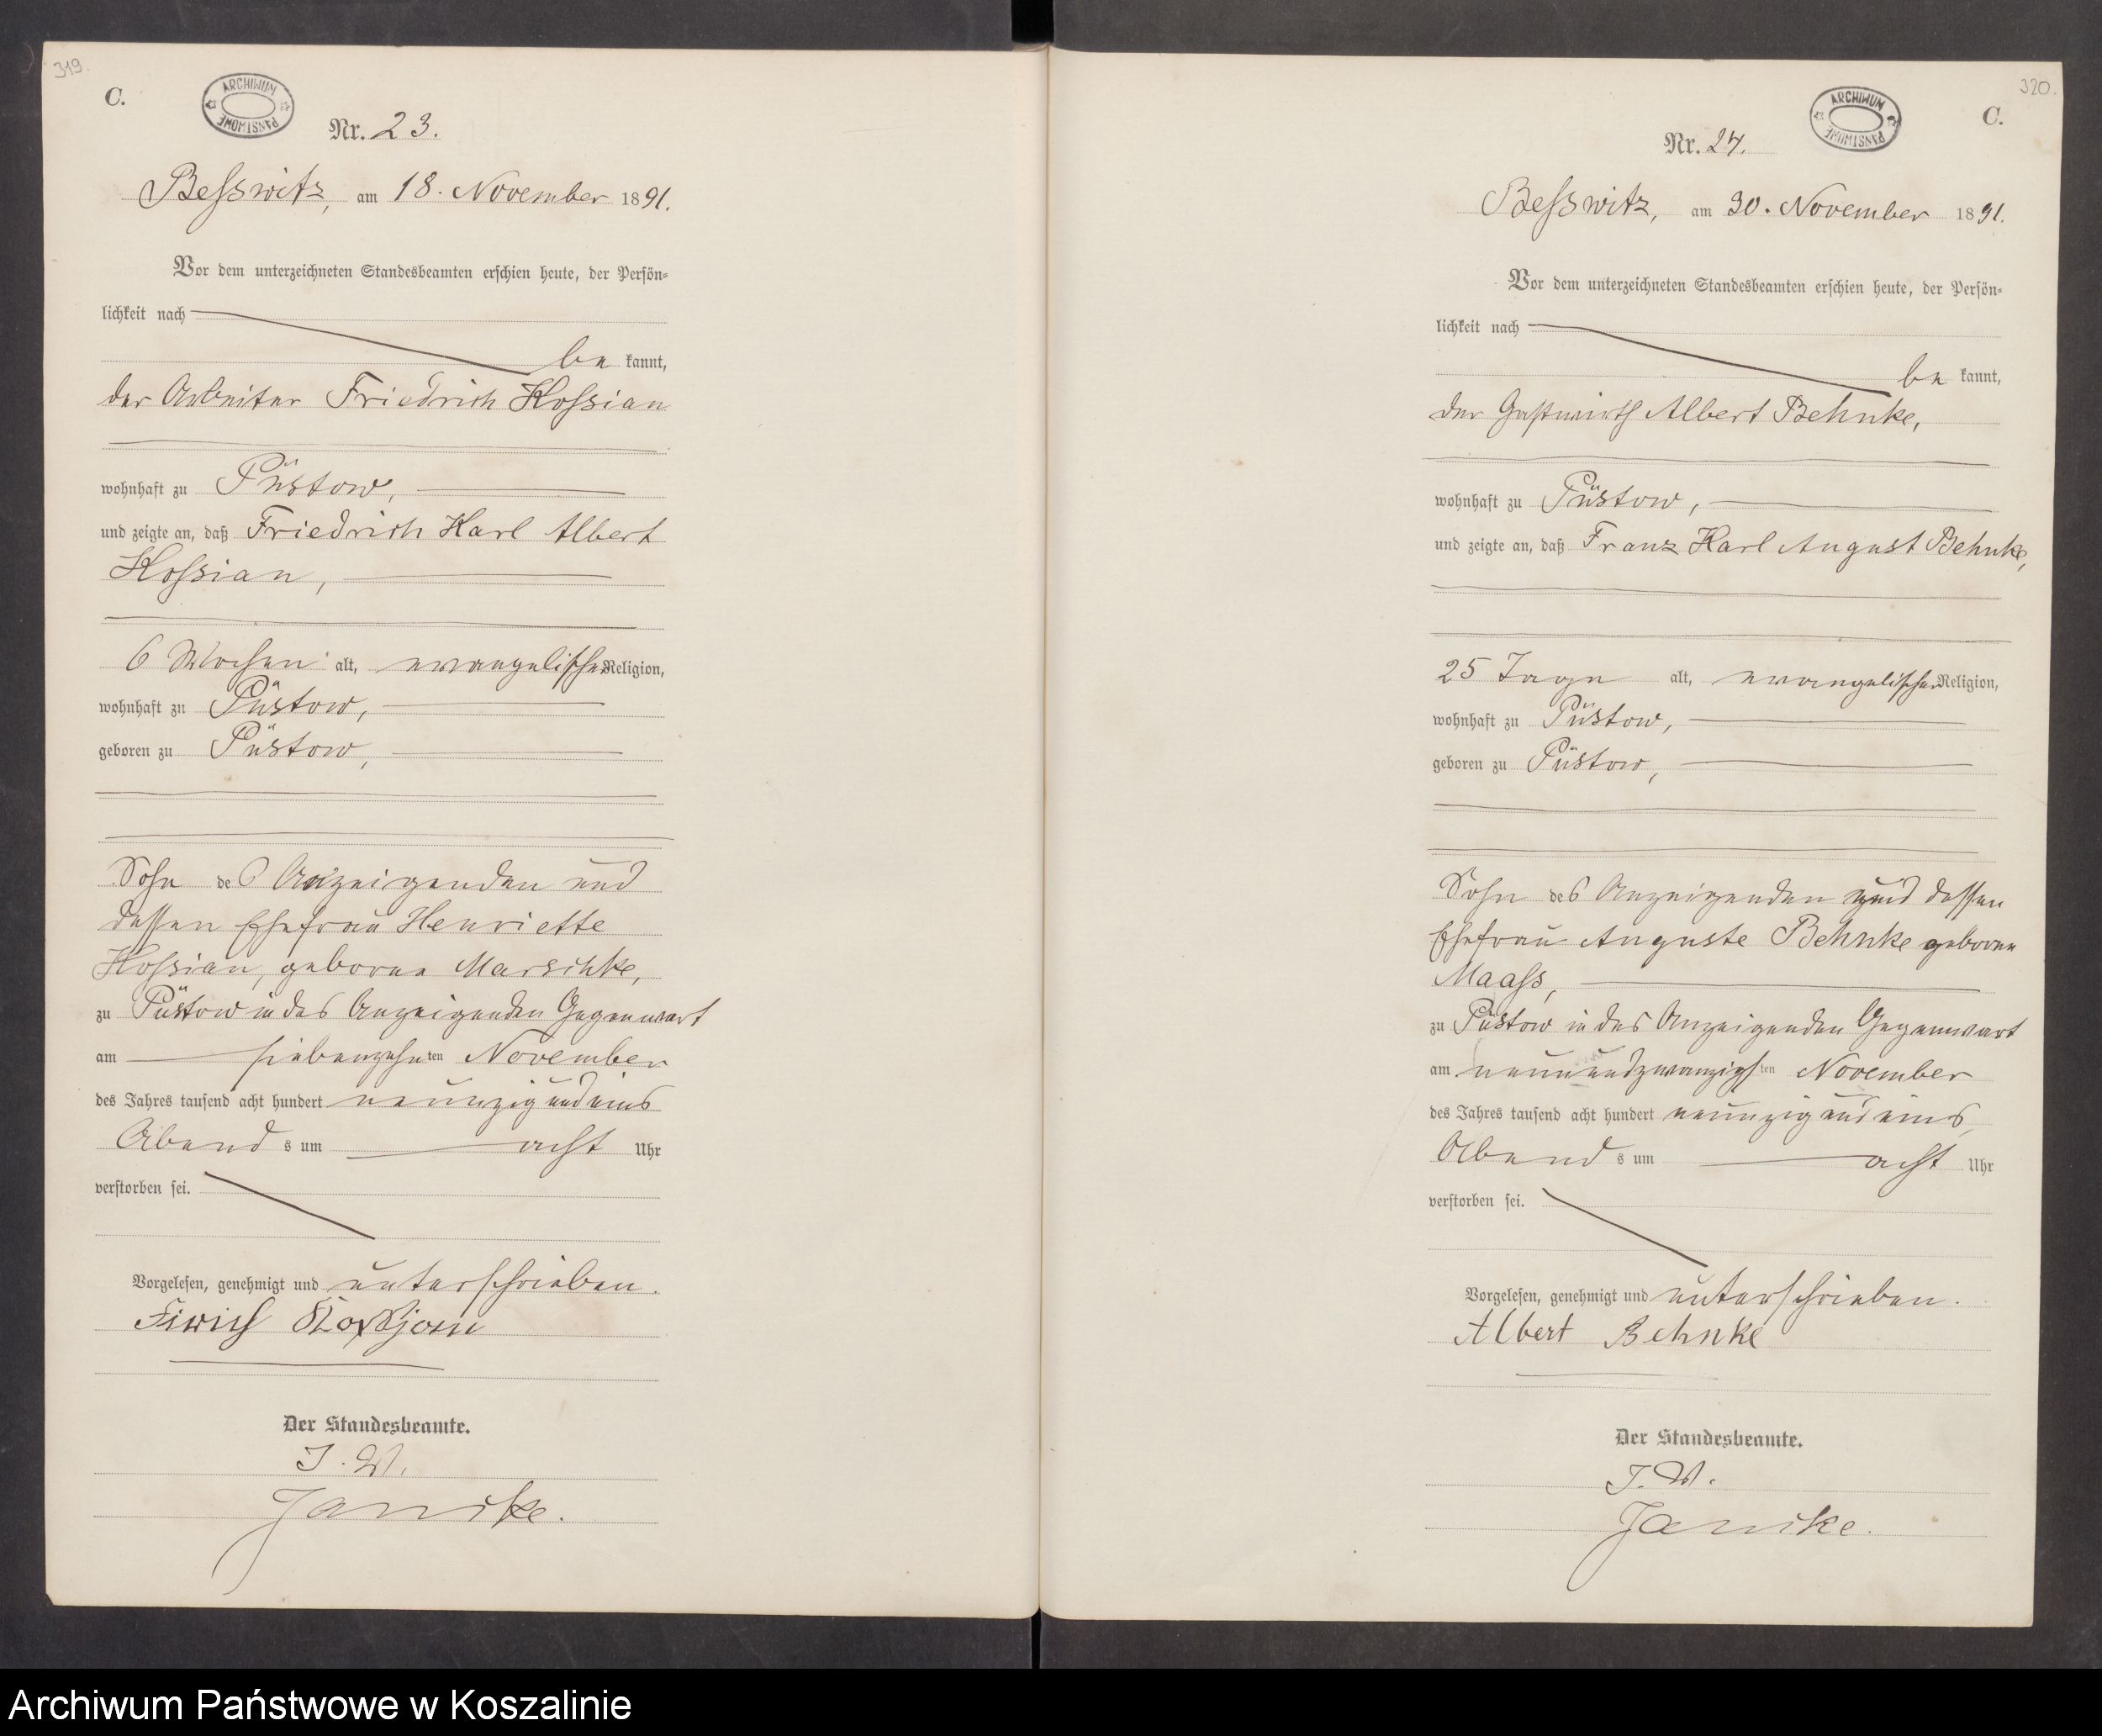 319.
C.
ARCHIWUM PAŃSTWOWE
Nr. 23.
Beßwitz, am 18. November 1891.
Vor dem unterzeichneten Standesbeamten erschien heute, der Persön-
lichkeit nach
be kannt,
der Arbeiter Friedrich Koßian
wohnhaft zu Püstow,
und zeigte an, daß Friedrich Karl Albert
Koßian,
6 Wochen alt, evangelischer Religion,
wohnhaft zu Püstow,
geboren zu Püstow,
Sohn des Anzeigenden und
dessen Ehefrau Henriette
Koßian, geborne Marschke,
zu Püstow in des Anzeigenden Gegenwart
am siebenzehnten November
des Jahres tausend acht hundert neunzig und eins
Abends um acht Uhr
verstorben sei.
Vorgelesen, genehmigt und unterschrieben.
Der Standesbeamte.
J. V.
Janike.
320.
C.
ARCHIWUM PAŃSTWOWE
Nr. 24.
Beßwitz, am 30. November 1891.
Vor dem unterzeichneten Standesbeamten erschien heute, der Persön-
lichkeit nach
be kannt,
der Gastwirth Albert Behnke,
wohnhaft zu Püstow,
und zeigte an, daß Franz Karl August Behnke,
25 Tage alt, evangelischer Religion,
wohnhaft zu Püstow,
geboren zu Püstow,
Sohn des Anzeigenden und dessen
Ehefrau Auguste Behnke geborne
Maaß,
zu Püstow in des Anzeigenden Gegenwart
am neunundzwanzigsten November
des Jahres tausend acht hundert neunzig und eins,
Abends um acht Uhr
verstorben sei.
Vorgelesen, genehmigt und unterschrieben.
Albert Behnke
Der Standesbeamte.
J. V.
Janike.
Archiwum Państwowe w Koszalinie